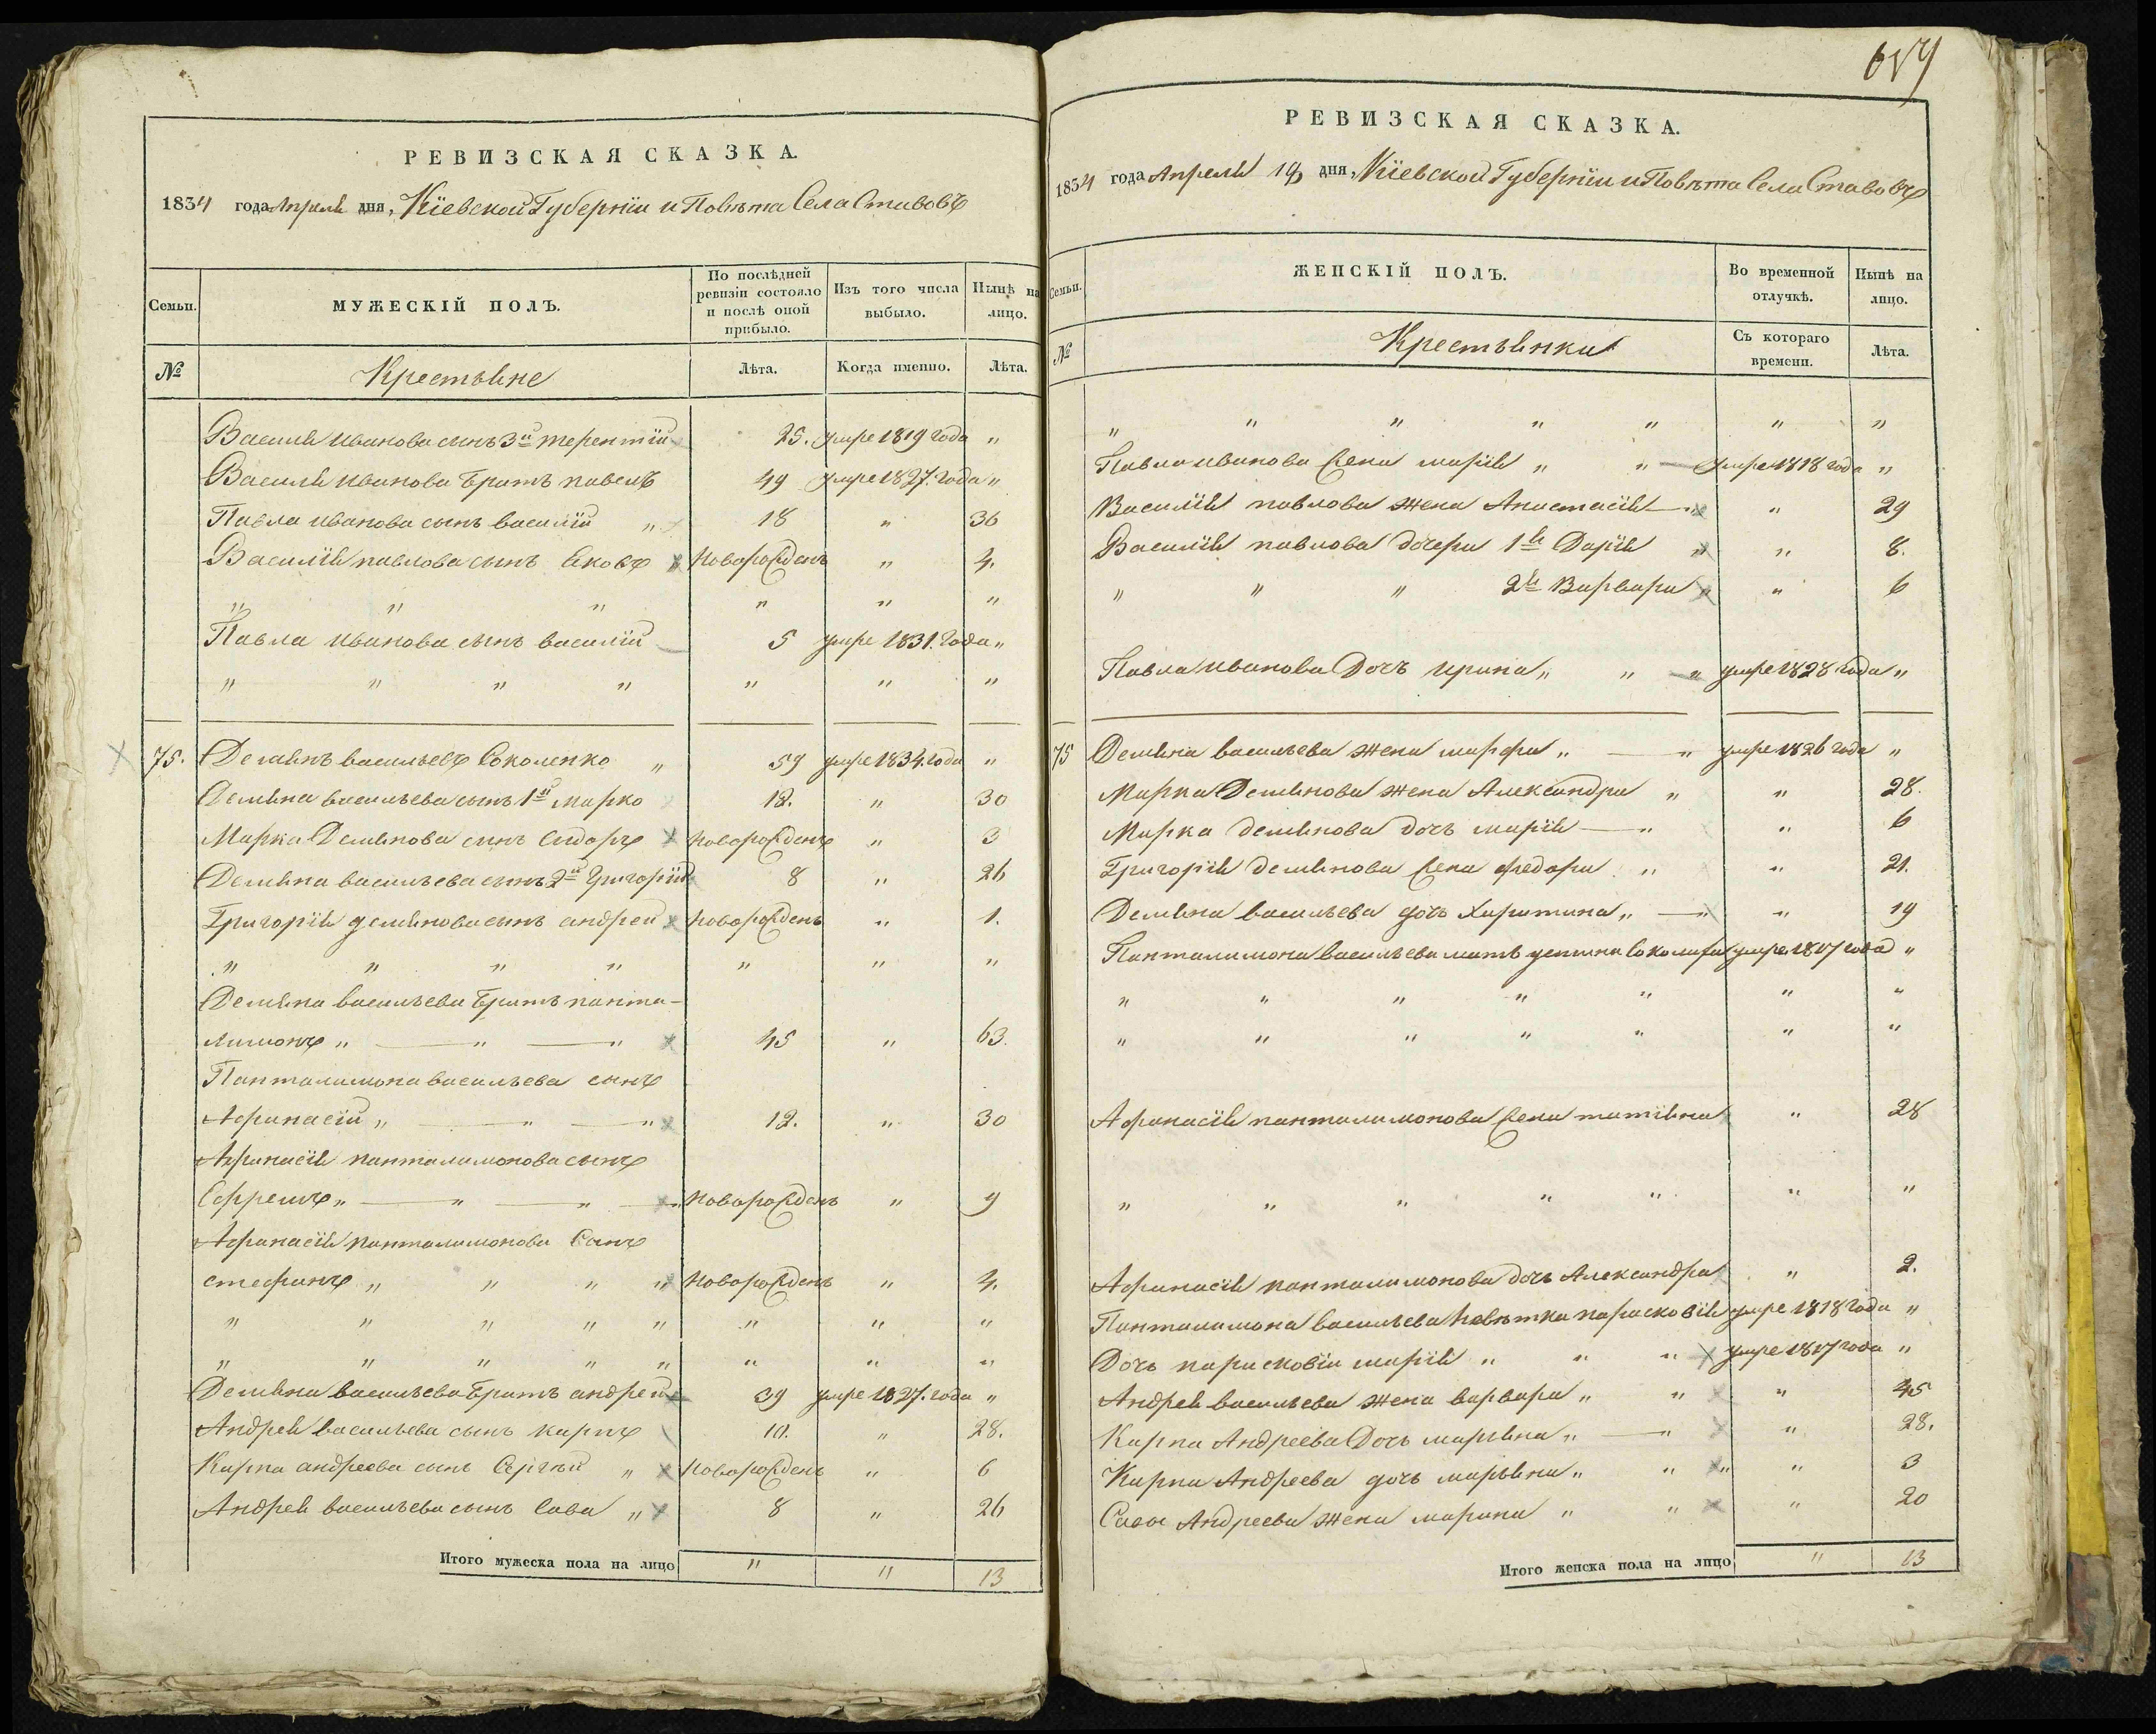 РЕВИЗСКАЯ СКАЗКА.
1834 года Апреля дня, Кіевской Губерніи и Повѣта Села Ставовъ
Семьи.
МУЖЕСКІЙ ПОЛЪ.
По послѣдней ревизіи состояло и послѣ оной прибыло.
Изъ того числа выбыло.
Нынѣ на лицо.
№
Крестьяне
Лѣта.
Когда именно.
Лѣта.
Василія иванова сынъ 3й терентій 25. умре 1819 года "
Василія иванова братъ павелъ 49 умре 1827. года "
Павла иванова сынъ василій " 18 " 36
Василія павлова сынъ яковъ " новорожденъ " 4.
" " " " " "
Павла иванова сынъ василій 5 умре 1831. года "
" " " " " " "
75. Демянъ васильевъ Соколенко " 59 умре 1834. года "
Демяна васильева сынъ 1й марко 12. " 30
Марка Демянова сынъ сидоръ новорожденъ " 3
Демяна васильева сынъ 2й григорій 8 " 26
Григорія демянова сынъ андрей новорожденъ " 1.
" " " " " " "
Демяна васильева братъ панта-
лимонъ " " " 45 " 63.
Панталимона васильева сынъ
Афанасій " " " 12. " 30
Афанасія панталимонова сынъ
Ефремъ " " " " новорожденъ " 9
Афанасія панталимонова Сынъ
стефанъ " " " " новорожденъ " 4.
" " " " " " " "
" " " " " " " "
Демяна васильева братъ андрей 39 умре 1827. года "
Андрея васильева сынъ карпъ 10. " 28.
Карпа андреева сынъ Сергѣй " новорожденъ " 6
Андрея васильева сынъ Сава " 8 " 26
Итого мужеска пола на лицо " " 13
РЕВИЗСКАЯ СКАЗКА.
1834 года Апреля 19 дня, Кіевской Губерніи и Повѣта Села Ставовъ
Семьи.
ЖЕНСКІЙ ПОЛЪ.
Во временной отлучкѣ.
Нынѣ на лицо.
№
Крестьянки
Съ котораго времени.
Лѣта.
" " " " " " "
Павла иванова жена марія " " умре 1818 года "
Василія павлова жена Анастасія " " 29
Василія павлова дочери 1я Дарія " " 8.
" " " 2я Варвара " " 6
Павла иванова Дочь ирина " " " умре 1828 года "
75 Демяна васильева жена марфа " " умре 1826 года "
Марка Демянова жена Александра " " 28.
Марка демянова дочь марія " " 6
Григорія демянова жена федора " " 21.
Демяна васильева дочь Харитина " " " 19
Панталимона васильева мать умре 1817 года "
" " " " " " "
" " " " " " "
Афанасія панталимонова жена татіяна " 28
" " " " " " "
Афанасія панталимонова дочь Александра " 2.
Панталимона васильева невѣтка парасковія умре 1818 года "
Дочь парасковіи марія " " " умре 1817 года "
Андрея васильева жена варвара " " " 45
Карпа Андреева Дочь маряна " " " 28.
Карпа Андреева дочь маряна " " " " 3
Савы Андреева жена марина " " " 20
Итого женска пола на лицо " 13